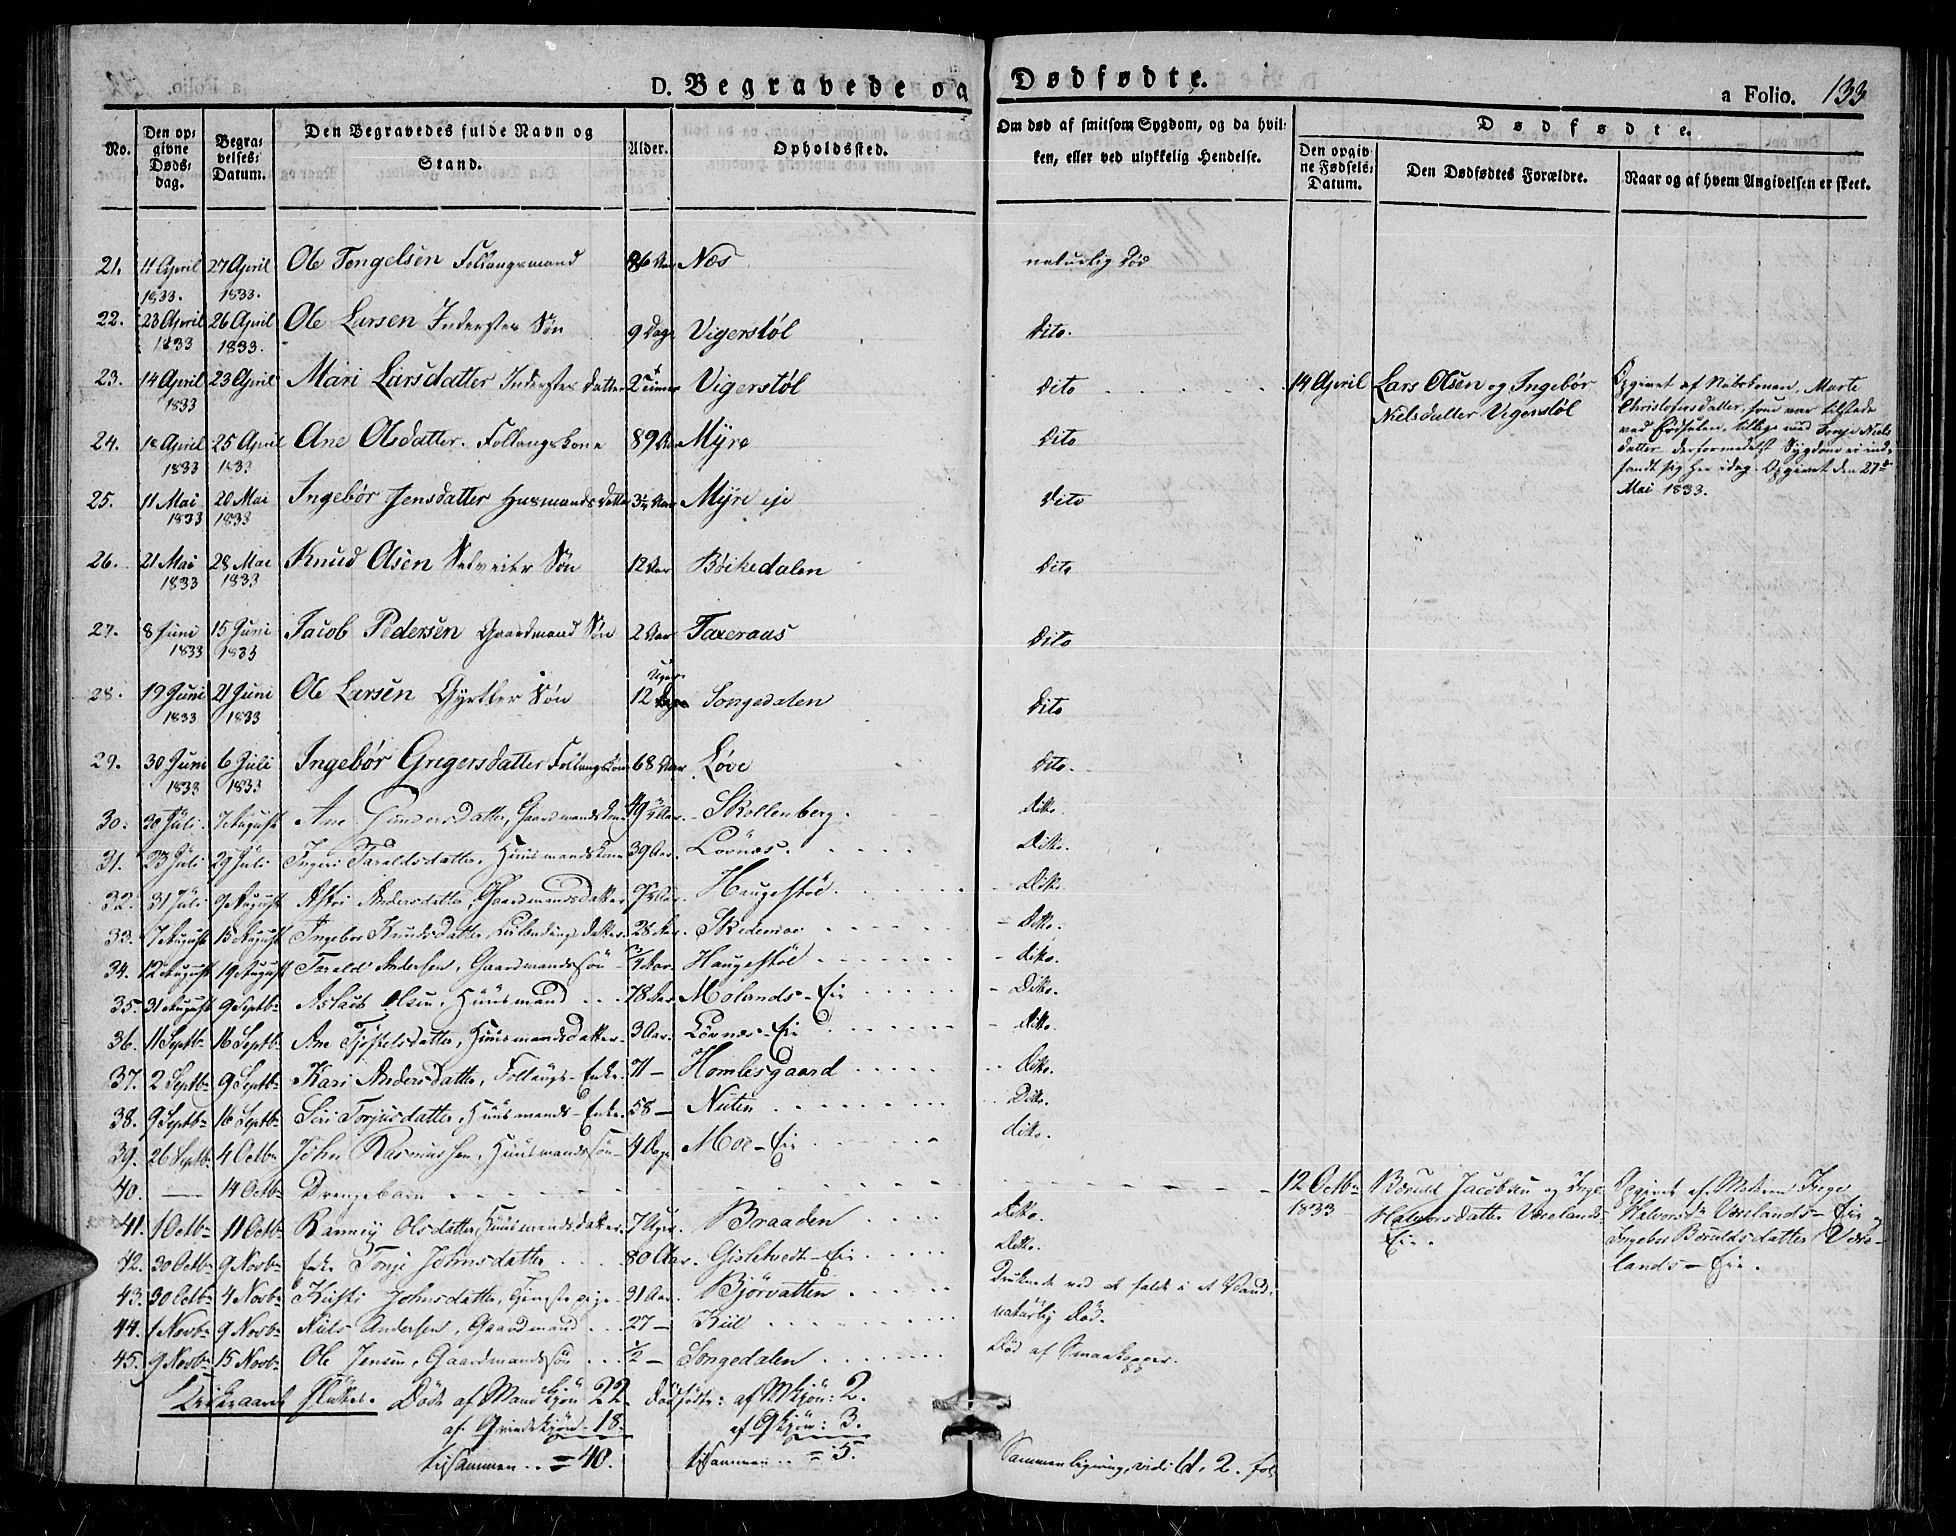 D. Begravede og Dødfødte. a Folio. 133
No. Den opgivne Dødsdag. Begravelses Datum. Den Begravedes fulde Navn og Stand. Alder. Opholdssted. Om død af smitsom Sygdom, og da hvilken, eller ved ulykkelig Hendelse. Dødfødte. Den opgivne Fødsels Datum. Den Dødfødtes Forældre. Naar og af hvem Angivelsen er skeet.
21. 11 April 1833. 27 April 1833. Ole Tengelsen Follaugsmand 86 Aar Næs naturlig Død
22. 23 April 1833 26 April 1833. Ole Larsen Inderstes Søn 9 Dage Vigerstøl Dito.
23. 14 April 1833 23 April Mari Larsdatter Inderstes Datter 2 Timer Vigerstøl Dito 14 April Lars Olsen og Ingebør Nielsdatter Vigerstøl Opgivet af Nabokonen, Marte Christofersdatter, som var tilstede ved Fødselen, tillige med Tonje Nielsdatter der formedelst Sygdom ei indfandt sig her idag. Opgivet den 27de Mai 1833.
24. 18 April 1833 25 April 1833 Ane Olsdatter. Follaugskone 89 Aar Myre Dito
25. 11 Mai 1833 20 Mai 1833 Ingebør Jensdatter Husmands Datter 3½ Aar Myre eje Dito
26. 21 Mai 1833 28 Mai 1833 Knud Olsen Selveier Søn 12 Aar Böikedalen Dito
27. 8 Juni 1833 15 Juni 1833 Jacob Pedersen Gaardmand Søn 2 Aar Taxeraas Dito
28. 19 Juni 1833 21 Juni 1833 Ole Larsen Gyrtler Søn 12 Uger Songedalen Dito
29. 30 Juni 1833 6 Juli 1833 Ingebør Grigersdatter Follaugskone 68 Aar Løve Dito.
30. 30 Juli. 7 August Ane Gunersdatter, Gaardmandskone 49 Aar. Skollenberg. Ditto.
31. 23 Juli 29 Juli Ingeri Taraldsdatter, Huusmandskone 39 Aar. Lövnæs. Ditto.
32. 31 Juli 9 August Andersdatter, Gaardmandsdatter Aar. Haugestöl. Ditto.
33. 7 August 13 August Ingebor Knudsdatter, datter 28 Aar. Skedemoe Ditto.
34. 12 August 19 August Tarald Andersen, Gaardmandssön ¾ Aar. Haugestöl Ditto.
35. 31 August 9 Septbr Aslack Olsen, Huusmand 78 Aar. Molands-Eie Ditto.
36. 11 Septbr 16 Septbr Ane Tjöstelsdatter, Huusmandsdatter 3 Aar. Lövnæs-Eie Ditto.
37. 2 Septbr 9 Septbr Kari Andersdatter, Follaugs-Enke. 71 – Homlesgaard Ditto.
38. 9 Septbr 16 Septbr Siri Torjusdatter, Huusmands-Enke. 58 – Nuten Ditto.
39. 26 Septbr 4 Octbr John Rasmussen, Huusmandssön 4 Dage Moe-Eie ditto.
40. — 14 Octbr Drengebarn 12 Octbr 1833 Baruld Jacobsen og Inge Halvorsdatter Væelands-Eie. Opgivet af Moderen Inge Halvorsd. Væelands-Eie og Ingebor Baruldsdatter Væelands-Eie.
41. 1 Octbr 11 Octbr Ranney Olsdatter, Huusmandsdatter 7 Uger Braaden Ditto.
42. 30 Octbr 9 Novbr Enke Tonje Johnsdatter 80 Aar. Gisletvedt-Eie Ditto.
43. 30 Octbr 4 Novbr Kisti Johnsdatter, Tjenestepige 31 Aar. Björvatten Druknede ved at falde i et Vand.
44. 1 Novbr 9 Novbr Niels Andersen, Gaardmand 27 – Kiil naturlig Död.
45. 9 Novbr 15 Novbr Ole Jensen, Gaardmandssön ½ – Songedalen Död af Smaakopper.
Kirkeaaret sluttes. Döde af Mandkjön 22 Dödfödte: af Mkjön: 2.
af Qvindekjön – 18 af Qkjön: 3.
tilsammen .. = 40. tilsammen .. = 5. Sammenligning, vide Ld. 2. fol.